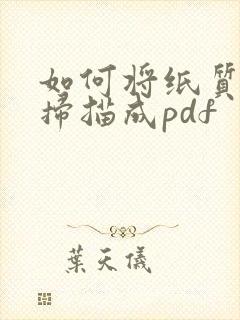 如何将纸质
掃描成pdf
葉天儀